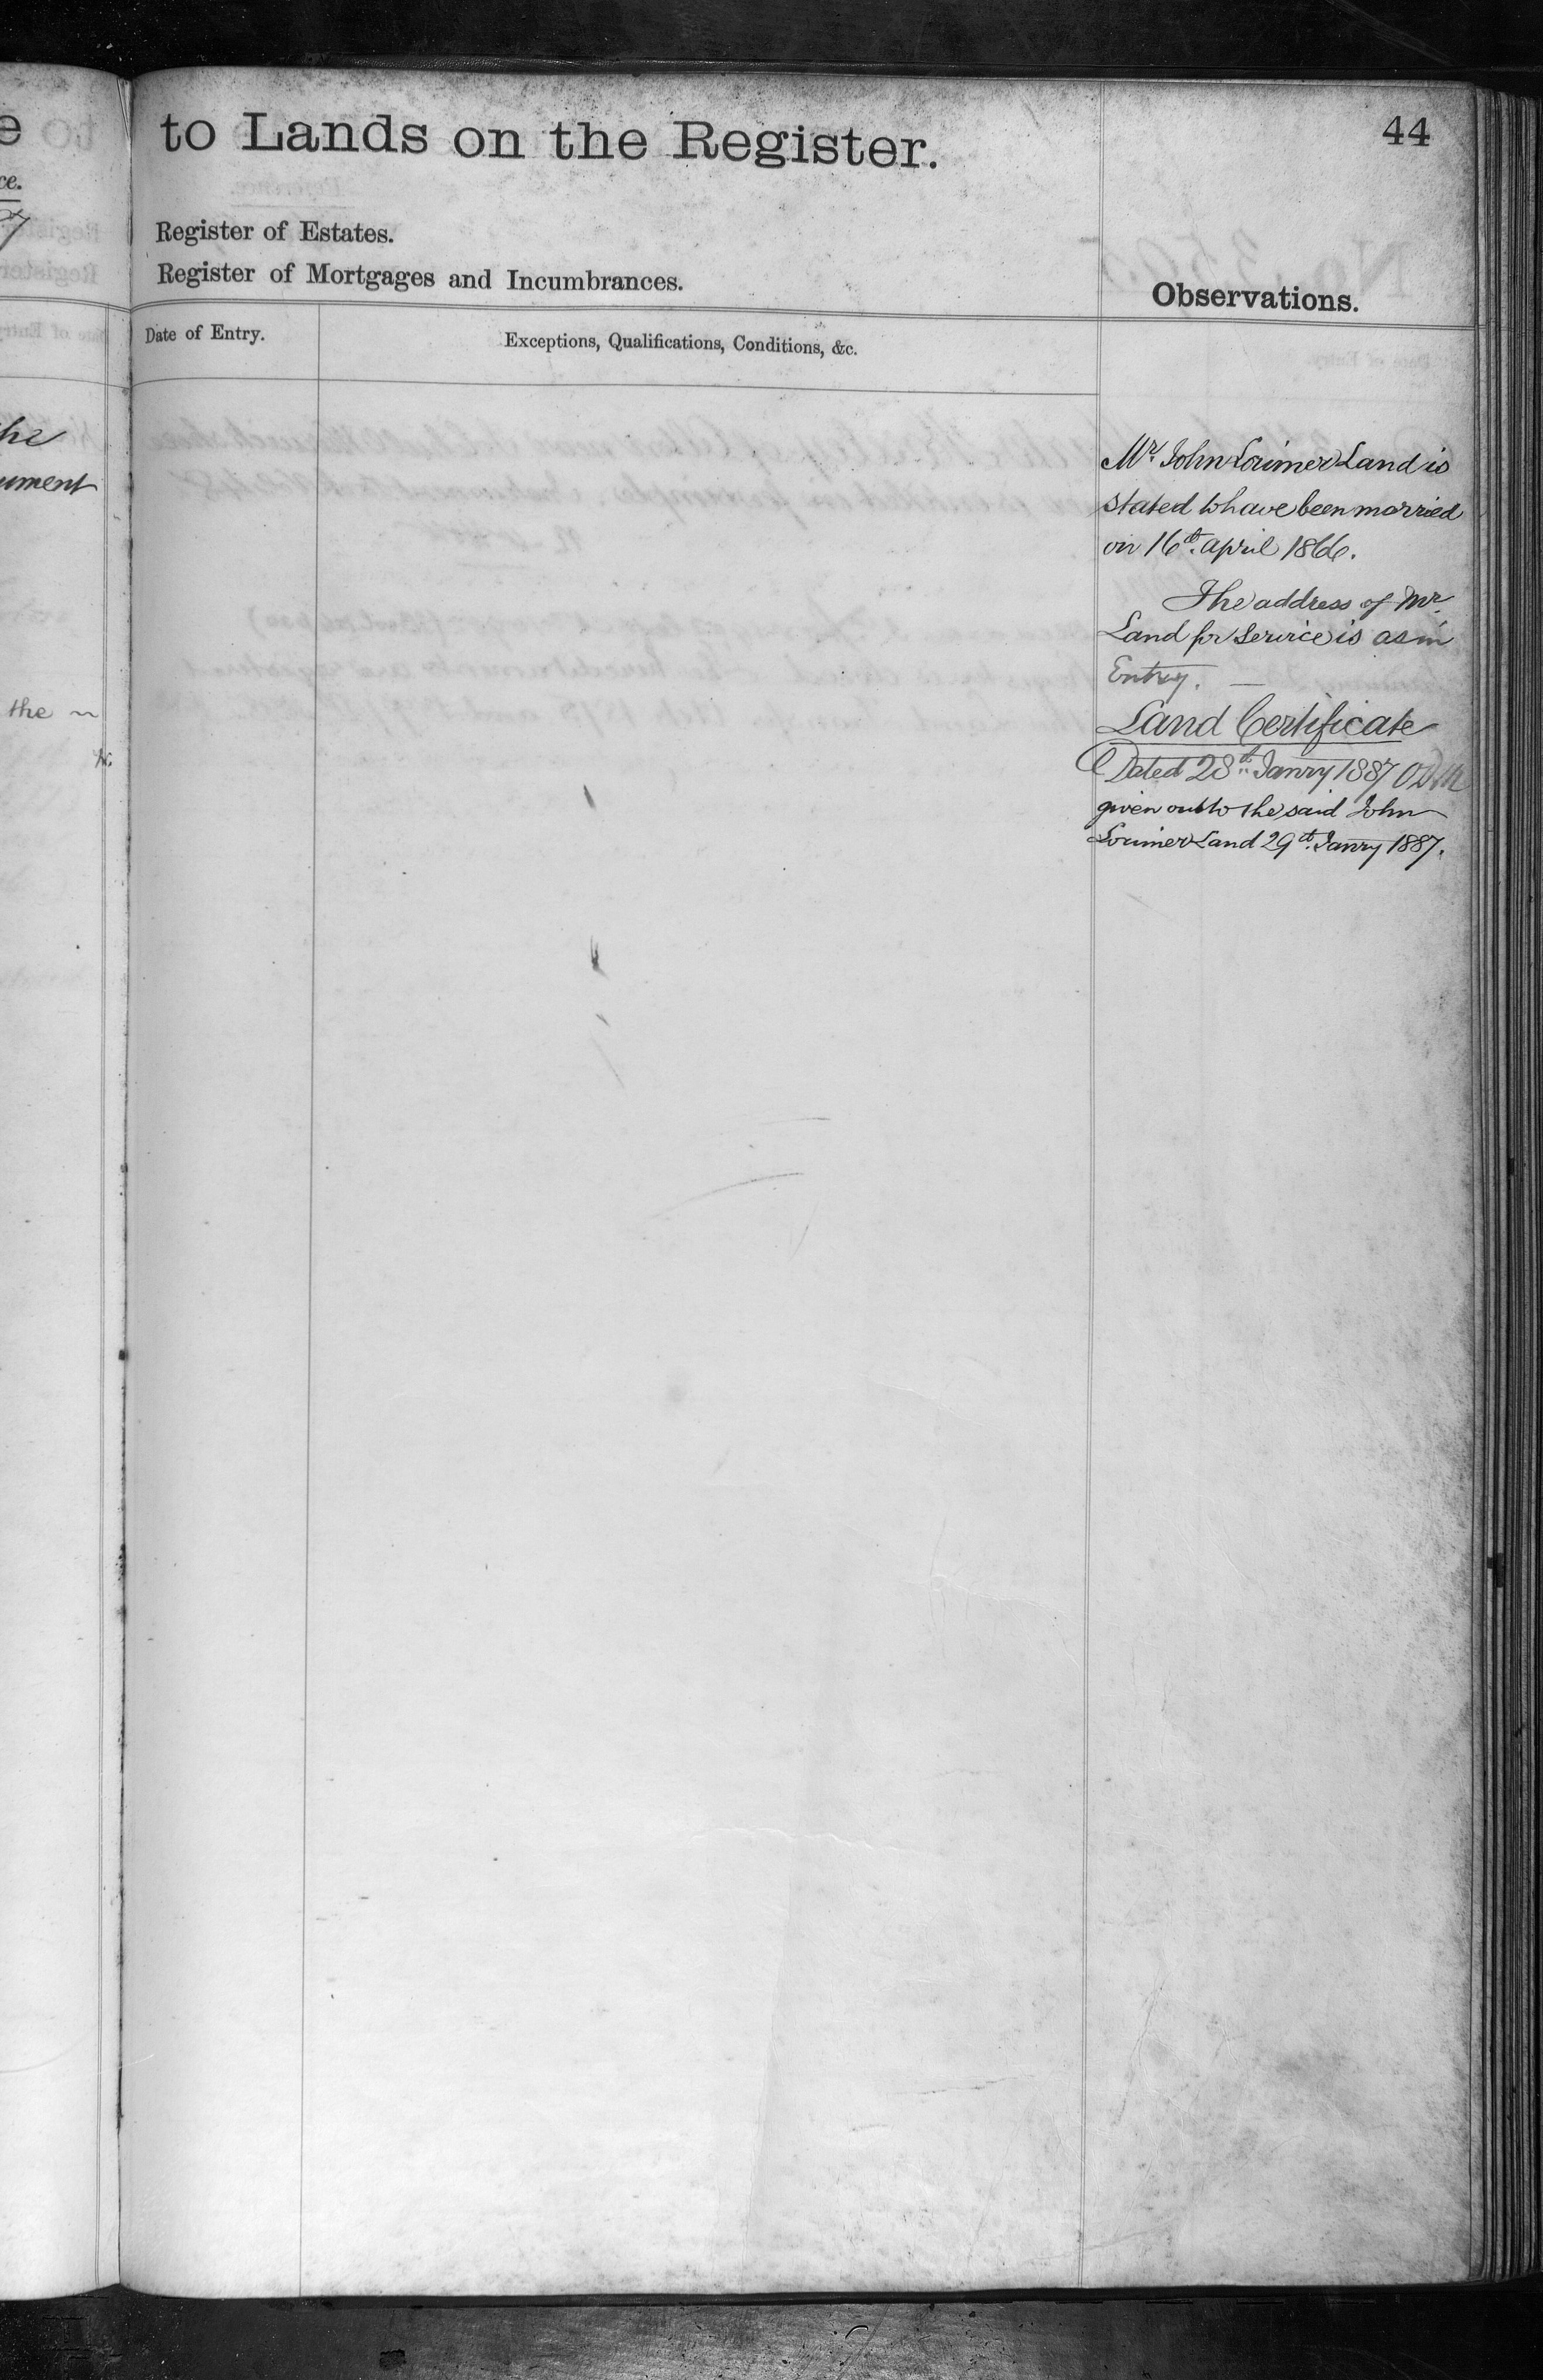 to Lands on the Register.
44
Register of Estates.
Register of Mortgages and Incumbrances.
Observations.
Date of Entry.
Exceptions, Qualifications, Conditions, &c.
Mr. John Lorimer Land is
stated to have been married
on 16th. April 1866.
The address of Mr.
Land for Service is as in
Entry. —
Land Certificate
Dated 28th Janry 1887
given out to the said John
Lorimer Land 29th. Janry 1887.
he
ument
the